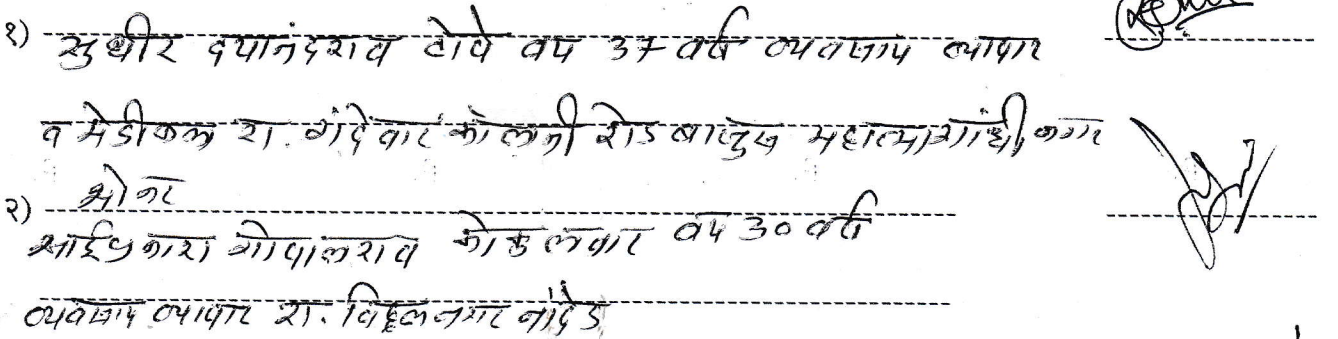 १) सुधीर दयानंदराव टोपे वय 37 वर्ष व्यवसाय व्यापार
व मेडीकल रा. गंदेवार कॉलनी रोड बाजुस महात्मा गांधी नगर
भोकर
२) साईप्रकाश गोपालराव कोकुलवार वय 30 वर्ष
व्यवसाय व्यापार रा. विठ्ठल नगर नांदेड